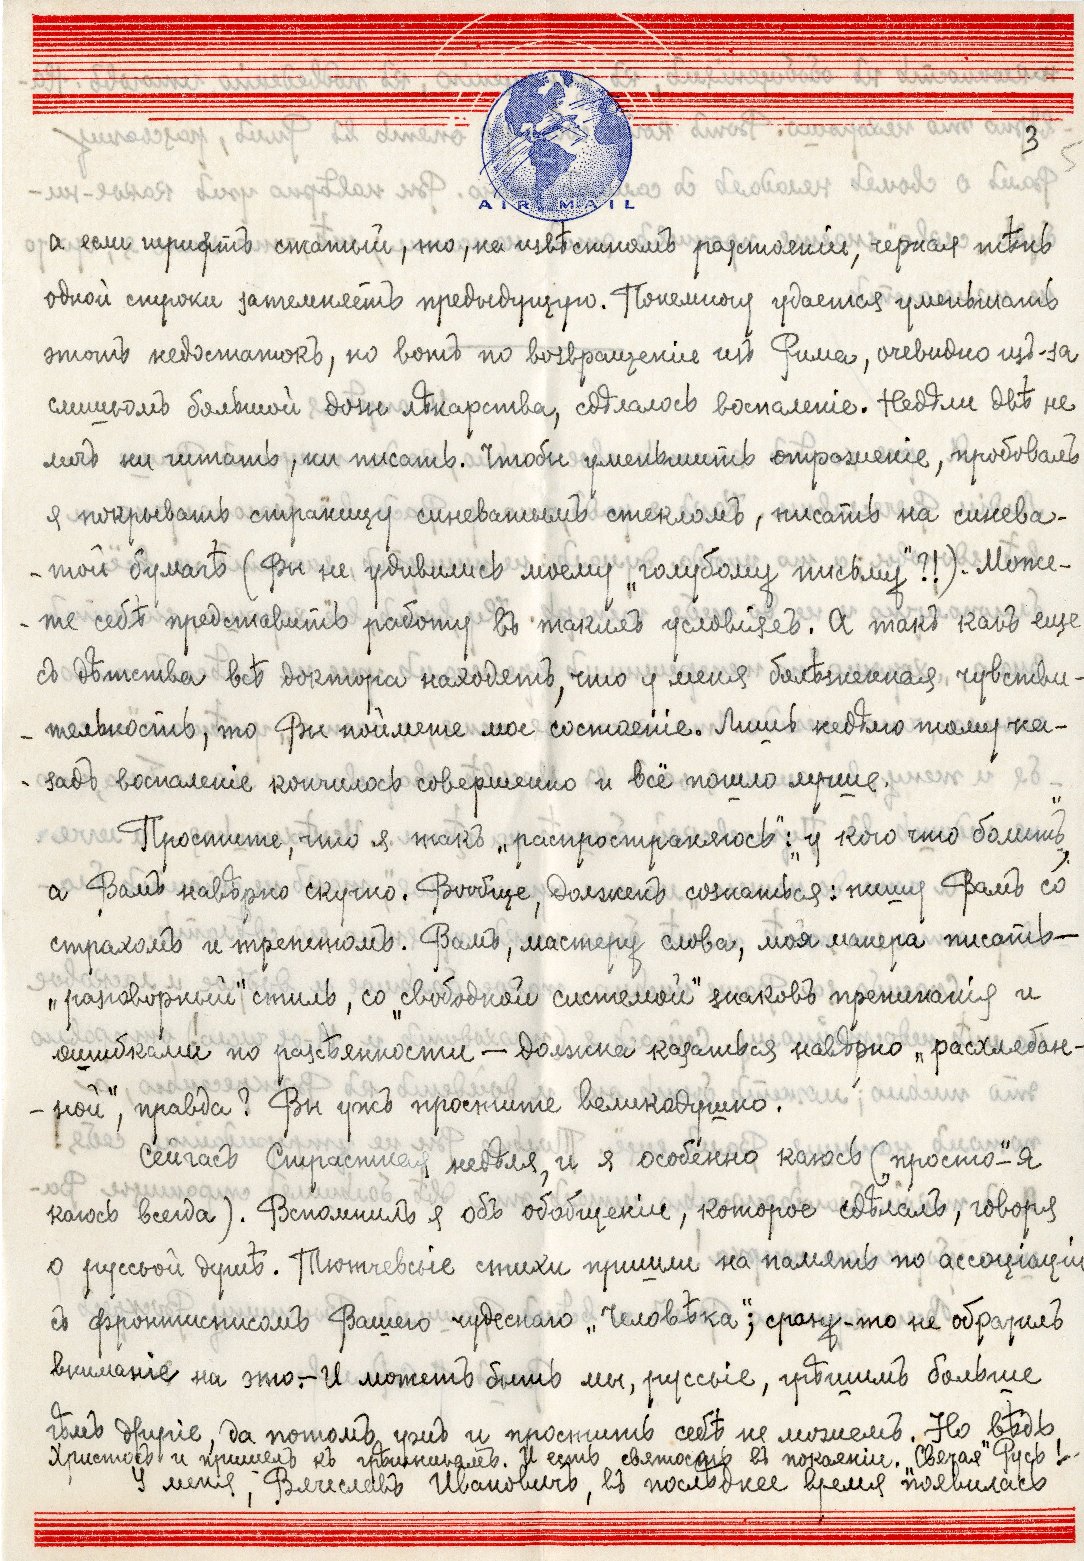 AIR MAIL
3
а если шрифтъ статый, то, на извѣстномъ разстоянiи, черная тѣнь
одной строки затемняетъ предыдущую. Понемногу удается уменьшать
этотъ недостатокъ, но вотъ по возвращенiе изъ Рима, очевидно изъ-за
слишкомъ большой дозы лѣкарства, сдѣлалось воспаленiе. Недѣли двѣ не
могъ ни читать, ни писать. Чтобы уменьшить отраженiе, пробовалъ
я покрывать страницу синеватымъ стекломъ, писать на синева-
-той бумагѣ (Вы не удивились моему „голубому письму"?!). Може-
-те себѣ представить работу въ такихъ условiяхъ. А такъ какъ еще
съ дѣтства всѣ доктора находятъ, что у меня болѣзненная чувстви-
-тельность, то Вы поймете мое состоянiе. Лишь недѣлю тому на-
-задъ воспаленiе кончилось совершенно и всё пошло лучше.
Простите, что я такъ „распространяюсь": „у кого что болитъ",
а Вамъ навѣрно скучно. Вообще, долженъ сознаться: пишу Вамъ со
страхомъ и трепетомъ. Вамъ, мастеру слова, моя манера писать—
„разговорный" стиль, со „свободной системой" знаковъ препинанiя и
ошибками по разсѣянности — должна казаться навѣрно „расхлябан-
-ной", правда? Вы ужъ простите великодушно.
Сейчасъ Страстная недѣля, и я особенно каюсь („просто" - я
каюсь всегда). Вспомнилъ я объ обобщенiе, которое сдѣлалъ, говоря
о русской душѣ. Тютчевскiе стихи пришли на память по ассоцiацiи
съ фронтисписомъ Вашего чудеснаго „Человѣка"; сразу-то не обратилъ
вниманiе на это.— И можетъ быть мы, русскiе, грѣшимъ больше
чѣмъ другiе, да потомъ ужъ и простить себѣ не можемъ. Но вѣдь
Христосъ и пришелъ къ грѣшникамъ. И есть святость въ покаянiи. „Святая" Русь!-
У меня, Вячеславъ Ивановичъ, въ послѣднее время появилась